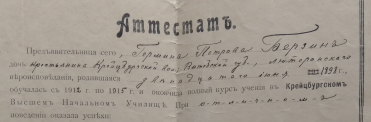 Аттестатъ.
Предъявительница сего, Гермина Петрова Берзинъ
дочь крестьянина Крейцбургской вол. Витебской губ., лютеранскаго
вѣроисповѣданія, родившаяся двадцатаго іюня 1898 г.
обучалась съ 1912 г. по 1915 г. и окончила полный курсъ ученія въ Крейцбургскомъ
Высшемъ Начальномъ Училищѣ. При отличномъ
поведеніи оказала успѣхи: